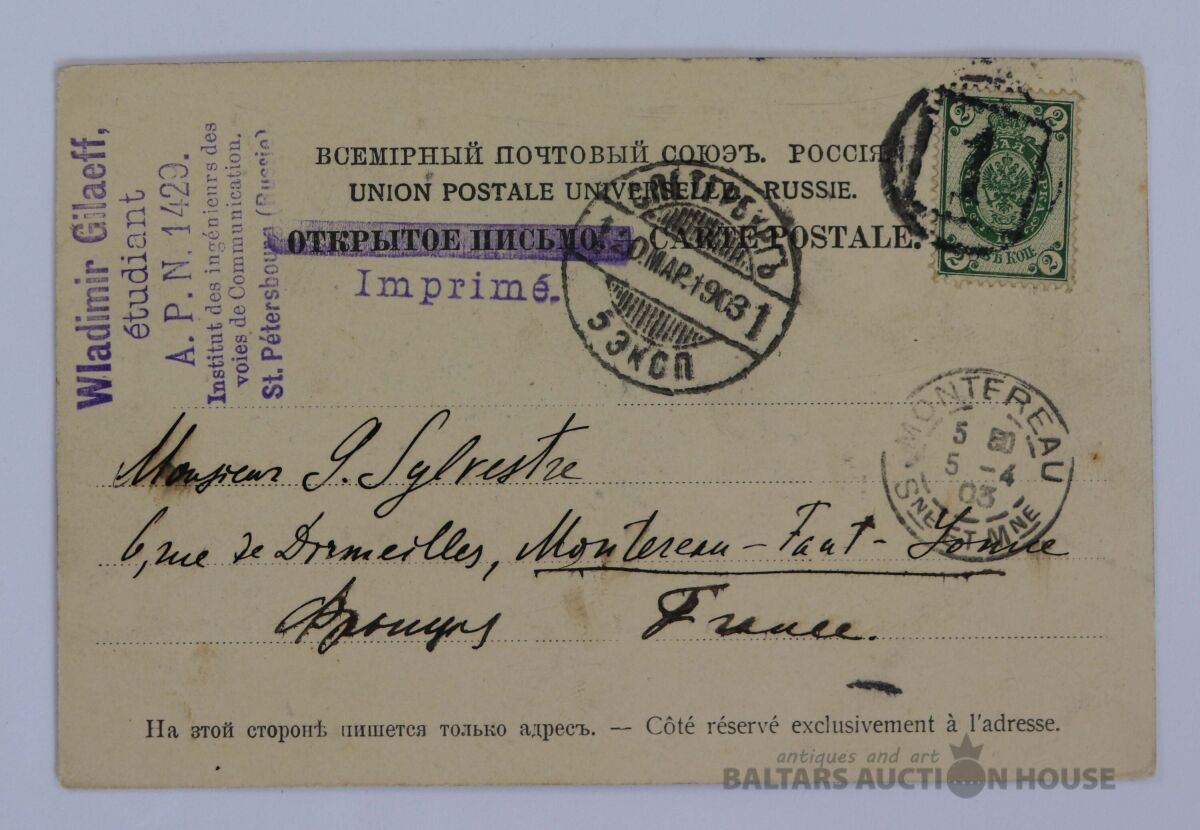 Wladimir Gilaeff,
étudiant
A. P. N. 1429.
Institut des ingénieurs des
voies de Communication.
St. Pétersbourg (Russie)
ВСЕМІРНЫЙ ПОЧТОВЫЙ СОЮЗЪ. РОССІЯ
UNION POSTALE UNIVERSELLE. RUSSIE.
ОТКРЫТОЕ ПИСЬМО. – CARTE POSTALE.
Imprimé.
С.ПЕТЕРБУРГЪ
МАР.1903
1
5 ЭКСП
2 2
1
2 КОП. 2
MONTEREAU
5
5 -4
03
SNE ET MNE
Monsieur G. Sylvestre
6, rue de Dormeilles, Montereau-Faut-Yonne
Франція France.
На этой сторонѣ пишется только адресъ. — Côté réservé exclusivement à l'adresse.
antiques and art
BALTARS AUCTION HOUSE